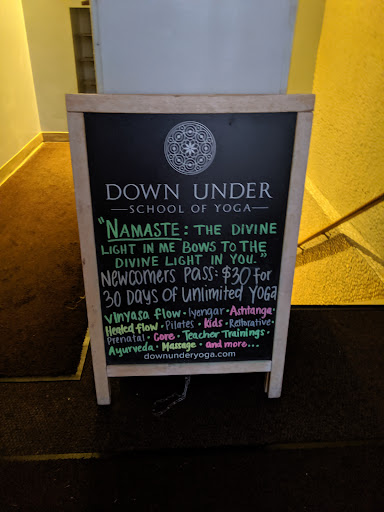 DOWN UNDER
SCHOOL OF YOGA
"NAMASTE: THE DIVINE
LIGHT IN ME BOWS TO THE
DIVINE LIGHT IN YOU."
Newcomers Pass: $30 for
30 Days of Unlimited Yoga
Vinyasa Flow • Iyengar • Ashtanga •
Heated Flow • Pilates • Kids • Restorative •
Prenatal • Core • Teacher Trainings •
Ayurveda • Massage • and more...
downunderyoga.com